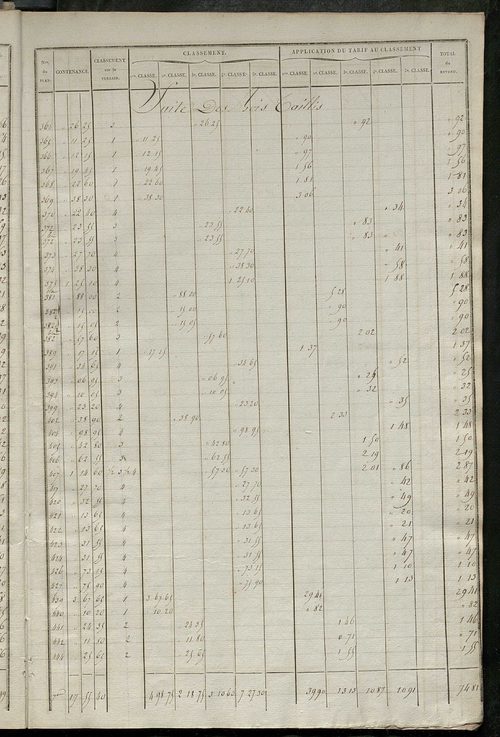 Nos. du plan. CONTENANCE. CLASSEMENT sur le terrain. CLASSEMENT. APPLICATION DU TARIF AU CLASSEMENT TOTAL du revenu.
1re CLASSE. 2e CLASSE. 3e CLASSE. 4e CLASSE. 5e CLASSE. 1re CLASSE. 2e CLASSE. 3e CLASSE. 4e CLASSE. 5e CLASSE.
Suite Des Bois Taillis
26 25 3 26 25 92 92
365 11 25 1 11 25 90 90
366 12 15 1 12 15 97 97
367 19 45 1 19 45 1 56 1 56
368 22 60 1 22 60 1 81 1 81
369 38 30 1 38 30 3 06 3 06
370 22 40 4 22 40 34 34
23 55 3 23 55 83 83
23 55 3 23 55 83 83
373 27 70 4 27 70 41 41
374 38 30 4 38 30 58 58
375 1 25 10 4 1 25 10 1 88 1 88
88 00 2 88 00 5 28 5 28
15 00 2 15 00 90 90
15 05 2 15 05 90 90
57 60 3 57 60 2 02 2 02
17 15 1 17 15 1 37 1 37
4 52 52
3 06 95
3 10 05 32 32
23 20 4 23 20 35 35
38 90 2 38 90 2 33 2 33
98 95 4 98 95 1 48 1 48
42 80 3 42 80 1 50 1 50
62 55 3 62 55 2 19 2 19
407 1 14 60 57 30 57 30 2 01 86 2 87
27 70 4 27 70 42 42
420 32 55 4 32 55 49 49
421 13 65 4 13 65 20 20
422 13 65 4 13 65 21 21
423 31 55 4 31 55 47 47
424 31 55 4 31 55 47 47
426 73 15 4 73 15 1 10 1 10
427 75 90 4 75 90 1 13 1 13
430 3 67 65 1 3 67 65 29 41 29 41
440 10 20 1 10 20 82 82
441 24 35 2 24 35 1 46 1 46
442 11 80 2 11 80 0 71 71
444 25 65 2 25 65 1 55 1 55
17 55 40 4 98 75 2 18 75 3 10 60 7 27 30 39 90 13 13 10 87 10 91 74 81